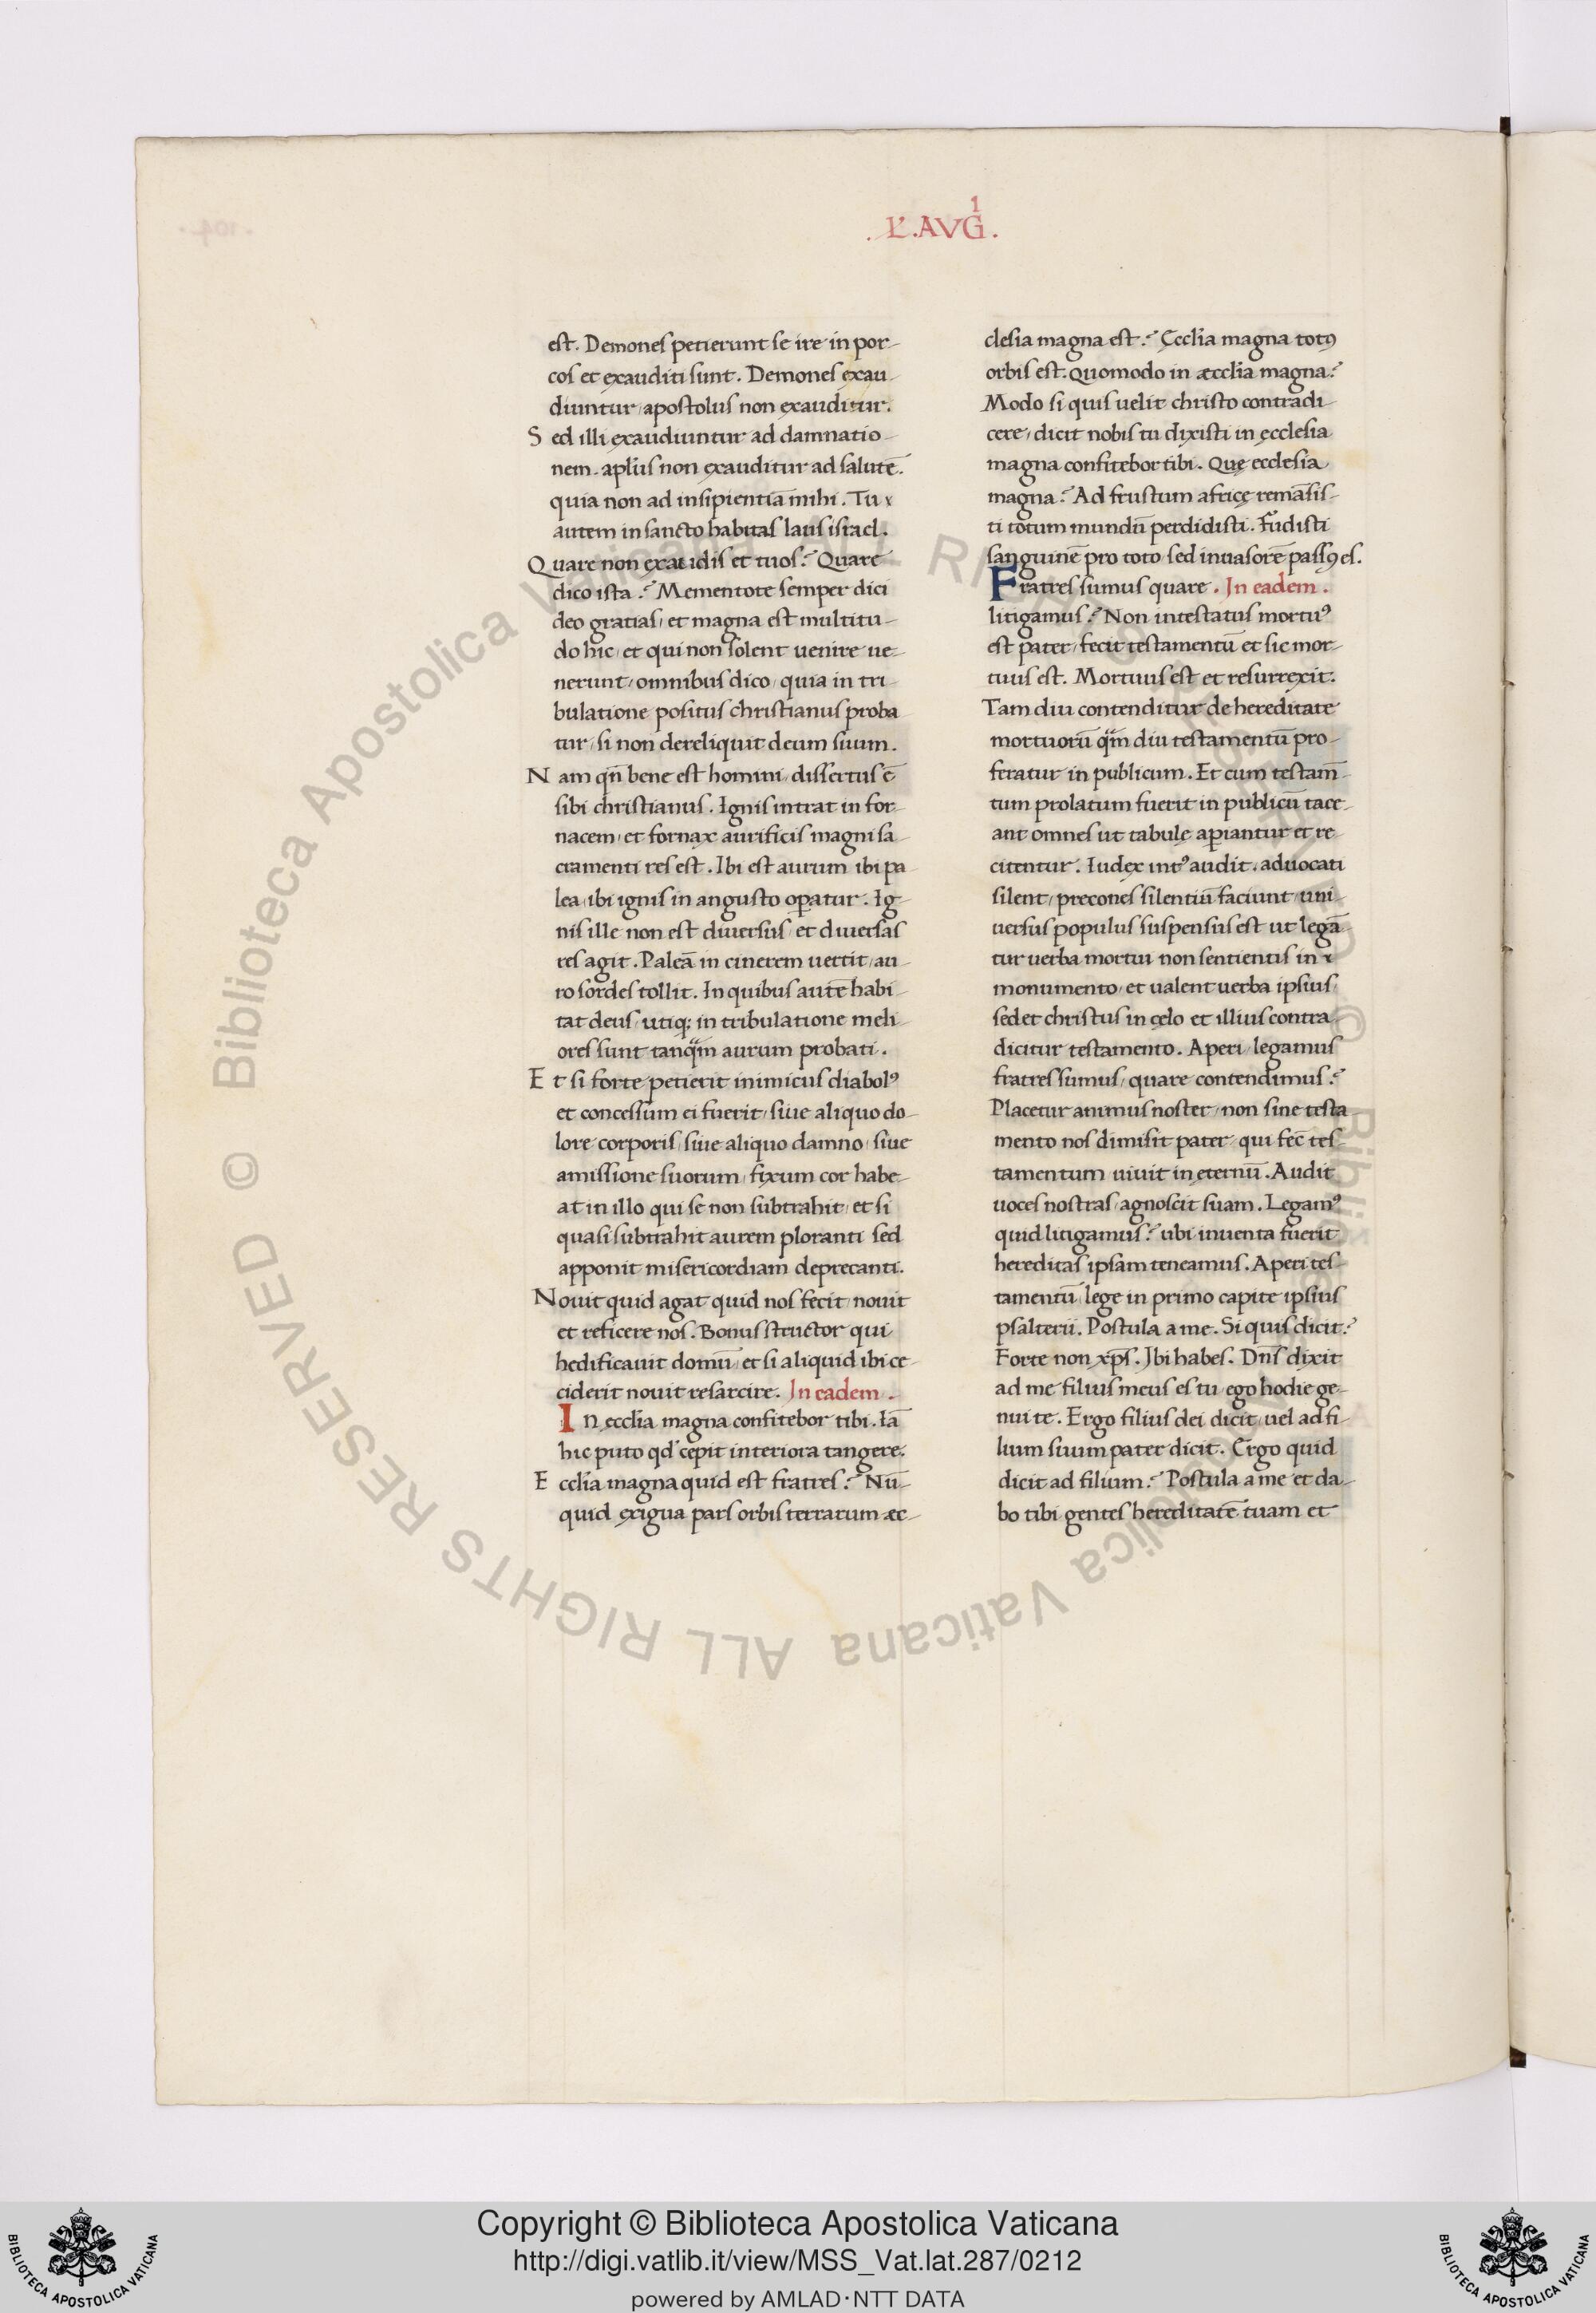 .L'.AVGⁱ.
est. Demones petierunt se ire in por-
cos et exauditi sunt. Demones exau-
diuntur, apostolus non exauditur.
Sed illi exaudiuntur ad damnatio-
nem. apl'us non exauditur ad salutē.
quia non ad insipientiā mihi. Tu
autem in sancto habitas laus israel.
Quare non exaudis et tuos? Quare
dico ista? Mementote semper dici
deo gratias, et magna est multitu-
do hic, et qui non solent uenire ue-
nerunt, omnibus dico, quia in tri-
bulatione positus christianus proba
tur, si non dereliquit deum suum.
Nam qn̄ bene est homini, dissertus ē
sibi christianus. Ignis intrat in for-
nacem, et fornax aurificis magni sa-
cramenti res est. Ibi est aurum ibi pa
lea, ibi ignis in angusto op̱atur. Ig-
nis ille non est diuersus, et diuersas
res agit. Paleā in cinerem uertit, au-
ro sordes tollit. In quibus autē habi-
tat deus, utiq; in tribulatione meli-
ores sunt tanq̄m aurum probati.
Et si forte petierit inimicus diabolꝰ
et concessum ei fuerit, siue aliquo do-
lore corporis, siue aliquo damno, siue
amissione suorum, fixum cor habe-
at in illo qui se non subtrahit, et si
quasi subtrahit aurem ploranti sed
apponit misericordiam deprecanti.
Nouit quid agat quid nos fecit, nouit
et reficere nos. Bonus structor qui
hedificauit domū, et si aliquid ibi ce-
ciderit nouit resarcire. In eadem.
In ęccl'ia magna confitebor tibi. Iā
hic puto qd' cepit interiora tangere.
Eccl'ia magna quid est fratres? Nū-
quid exigua pars orbis terrarum æc-
clesia magna est? Ęccl'ia magna totꝰ
orbis est. Quomodo in æccl'ia magna?
Modo si quis uelit christo contradi-
cere, dicit nobis tu dixisti in ęcclesia
magna confitebor tibi. Quę ecclesia
magna? Ad frustum africę remāsis-
ti totum mundū perdidisti. Fudisti
sanguinē pro toto, sed inuasorē passꝰ es.
Fratres sumus quare. In eadem.
litigamus? Non intestatus mortuꝰ
est pater, fecit testamentū et sic mor-
tuus est. Mortuus est et resurrexit.
Tam diu contenditur de hereditate
mortuorū q̄m diu testamentū pro-
feratur in publicum. Et cum testam̄-
tum prolatum fuerit in publicū tace-
ant omnes ut tabulę ap̱iantur et re-
citentur. Iudex intꝰ audit, aduocati
silent, precones silentiū faciunt, uni-
uersus populus suspensus est ut legā-
tur uerba mortui non sentientis in
monumento, et ualent uerba ipsius,
sedet christus in cęlo et illius contra-
dicitur testamento. Aperi, legamus
fratres sumus, quare contendimus?
Placetur animus noster, non sine testa-
mento nos dimisit pater, qui fec̄ tes-
tamentum uiuit in ęternū. Audit
uoces nostras, agnoscit suam. Legamꝰ
quid litigamus? ubi inuenta fuerit
hereditas ipsam teneamus. Aperi tes-
tamentū, lege in primo capite ipsius
psalterii. Postula a me. Si quis dicit?
Forte non xp̄s. Ibi habes. Dn̄s dixit
ad me filius meus es tu, ego hodie ge-
nui te. Ergo filius dei dicit, uel ad fi-
lium suum pater dicit. Ergo quid
dicit ad filium? Postula a me et da-
bo tibi gentes hereditatē tuam et
© Biblioteca Apostolica Vaticana ALL RIGHTS RESERVED
Copyright © Biblioteca Apostolica Vaticana
http://digi.vatlib.it/view/MSS_Vat.lat.287/0212
powered by AMLAD·NTT DATA
BIBLIOTECA APOSTOLICA VATICANA
BIBLIOTECA APOSTOLICA VATICANA